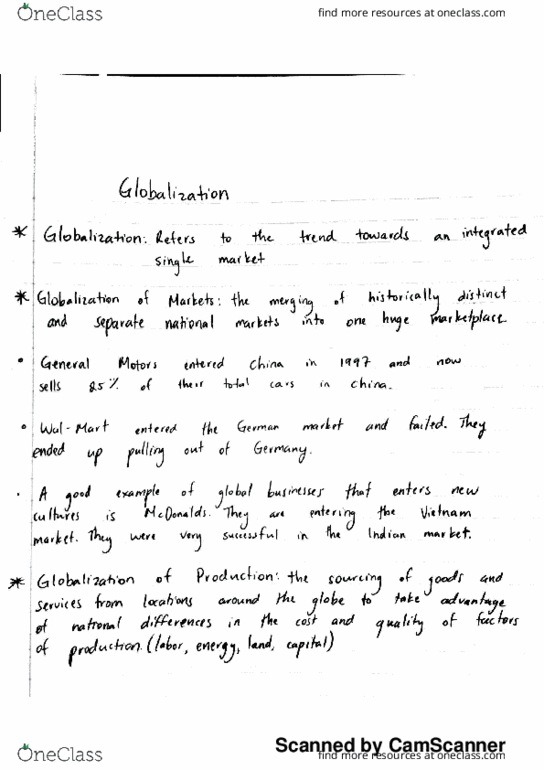 OneClass
find more resources at oneclass.com
Globalization
* Globalization: Refers to the trend towards an integrated
single market
* Globalization of Markets: the merging of historically distinct
and separate national markets into one huge marketplace
• General Motors entered China in 1997 and now
sells 25% of their total cars in China.
• Wal-Mart entered the German market and failed. They
ended up pulling out of Germany.
• A good example of global businesses that enters new
cultures is McDonalds. They are entering the Vietnam
market. They were very successful in the Indian market.
* Globalization of Production: the sourcing of goods and
services from locations around the globe to take advantage
of national differences in the cost and quality of factors
of production. (labor, energy, land, capital)
Scanned by CamScanner
OneClass
find more resources at oneclass.com